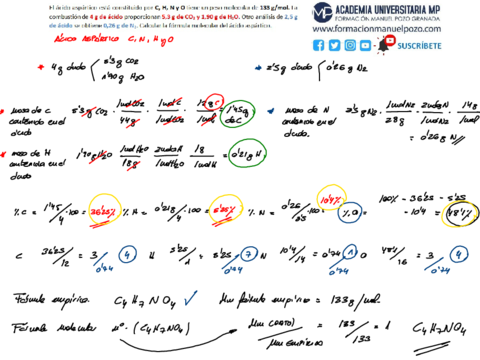 El ácido aspártico está constituido por C, H, N y O tiene un peso molecular de 133 g/mol. La
combustión de 4 g de ácido proporcionan 5,3 g de CO2 y 1,90 g de H2O. Otro análisis de 2,5 g
de ácido se obtiene 0,26 g de N2. Calcular la fórmula moleculas del ácido aspártico.
ACADEMIA UNIVERSITARIA MP
FORMACIÓN MANUEL POZO GRANADA
www.formacionmanuelpozo.com
SUSCRÍBETE
Ácido Aspártico C, N, H y O
* 4g ácido { 5'3g CO2
1'90g H2O
* 2'5g ácido { 0'26g N2
* masa de C contenido en el ácido 5'3g CO2 · 1molCO2/44g · 1molC/1molCO2 · 12gC/1mol = 1'45g de C
* masa de H contenida en el ácido 1'90gH2O · 1molH2O/18g · 2molH/1molH2O · 1g/1molH = 0'21g H
* masa de N contenido en el ácido. · 1molN2/28g · 2molN/1molN2 · 14g/1mol = 0'26g N
% C = 1'45/4 · 100 = 36'25% % H = 0'21g/4 · 100 = 5'25% % N = 0'26/2'5 · 100 = 10'4% % O = 100% - 36'25 - 5'25 - 10'4 = 48'1%
C 36'25/12 = 3/0'74 4 H 5'25/1 = 5'25/0'74 7 N 10'4/14 = 0'74/0'74 1 O 48'1/16 = 3/0'74 4
Fórmula empírica C4H7NO4 ✓ Mm fórmula empírica = 133g/mol.
Fórmula molecular n · (C4H7NO4) → Mm / Mm empírica = 133/133 = 1 C4H7NO4